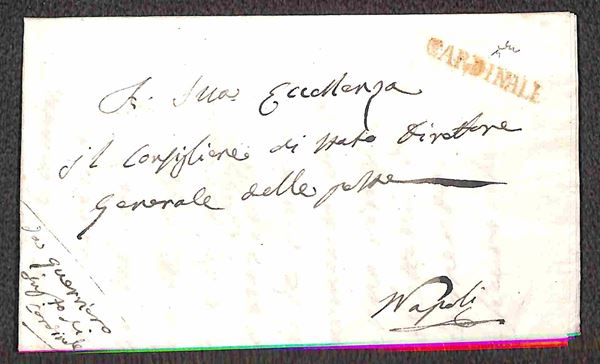 CARDINALE
A. Sua Eccellenza
Il Consigliere di Stato Direttore
Generale delle poste
Napoli
da